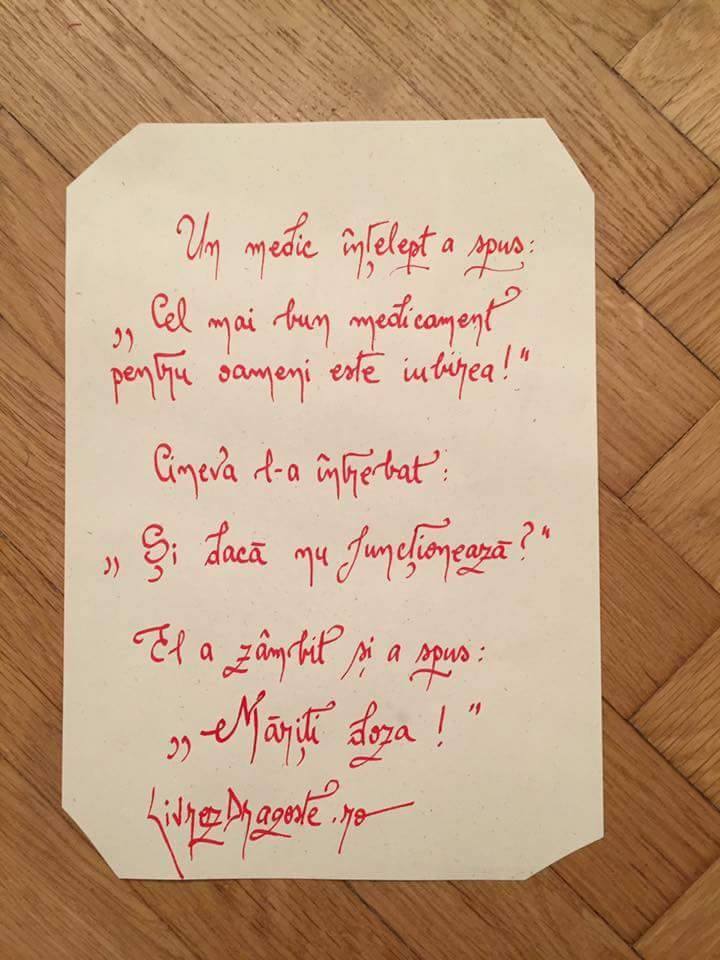 Un medic înțelept a spus:
„Cel mai bun medicament
pentru oameni este iubirea!"
Cineva l-a întrebat:
„Și dacă nu funcționează?"
El a zâmbit și a spus:
„Măriți doza!"
LivrezDragoste.ro